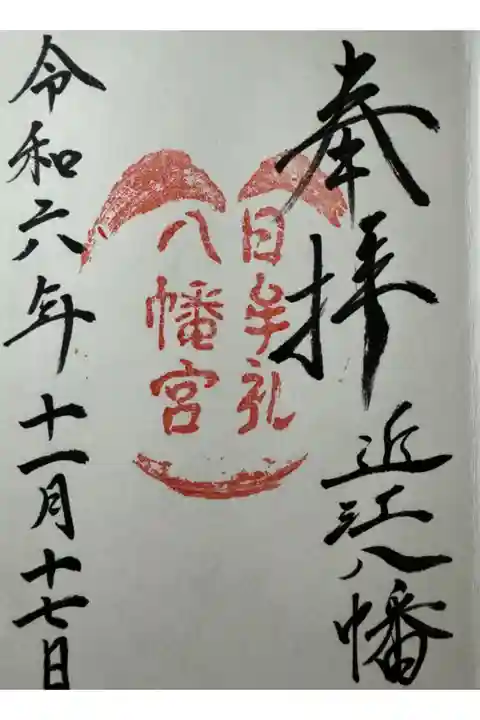 奉拝
近江八幡
日牟礼
八幡宮
令和六年十一月十七日